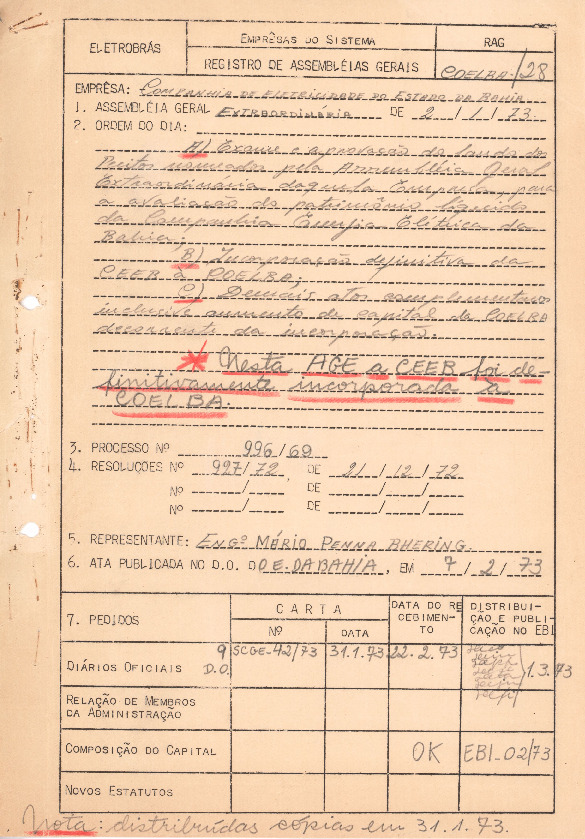 ELETROBRÁS
EMPRÊSAS DO SISTEMA
REGISTRO DE ASSEMBLÉIAS GERAIS
RAG
COELBA-/28
EMPRÊSA: COMPANHIA DE ELETRICIDADE DO ESTADO DA BAHIA
1. ASSEMBLÉIA GERAL EXTRAORDINÁRIA DE 2 / 1 / 73.
2. ORDEM DO DIA:
A) Exame e aprovação do laudo dos
Peritos nomeados pela Assembléia Geral
Extraordinária daquela Empresa, para
a avaliação do patrimônio líquido
da Companhia Energia Elétrica da
Bahia;
B) Incorporação definitiva da
CEEB à COELBA;
C) Demais atos complementares
inclusive aumento de capital da COELBA
decorrente da incorporação.
* Nesta AGE a CEEB foi de-
finitivamente incorporada à
COELBA.
3. PROCESSO Nº 996/69
4. RESOLUÇÕES Nº 997/72, DE 21 / 12 / 72
Nº / DE / /
Nº / DE / /
5. REPRESENTANTE: ENGº MÁRIO PENNA BHERING
6. ATA PUBLICADA NO D.O. DO E. DA BAHIA, EM 7 / 2 / 73
7. PEDIDOS
CARTA
Nº
DATA
DATA DO RE
CEBIMEN-
TO
DISTRIBUI-
ÇÃO E PUBLI-
CAÇÃO NO EBI
DIÁRIOS OFICIAIS 9 D.O. SCGE-42/73 31.1.73 22.2.73 1.3.73
RELAÇÃO DE MEMBROS
DA ADMINISTRAÇÃO
COMPOSIÇÃO DO CAPITAL OK EBI-02/73
NOVOS ESTATUTOS
Nota: distribuídas cópias em 31.1.73.